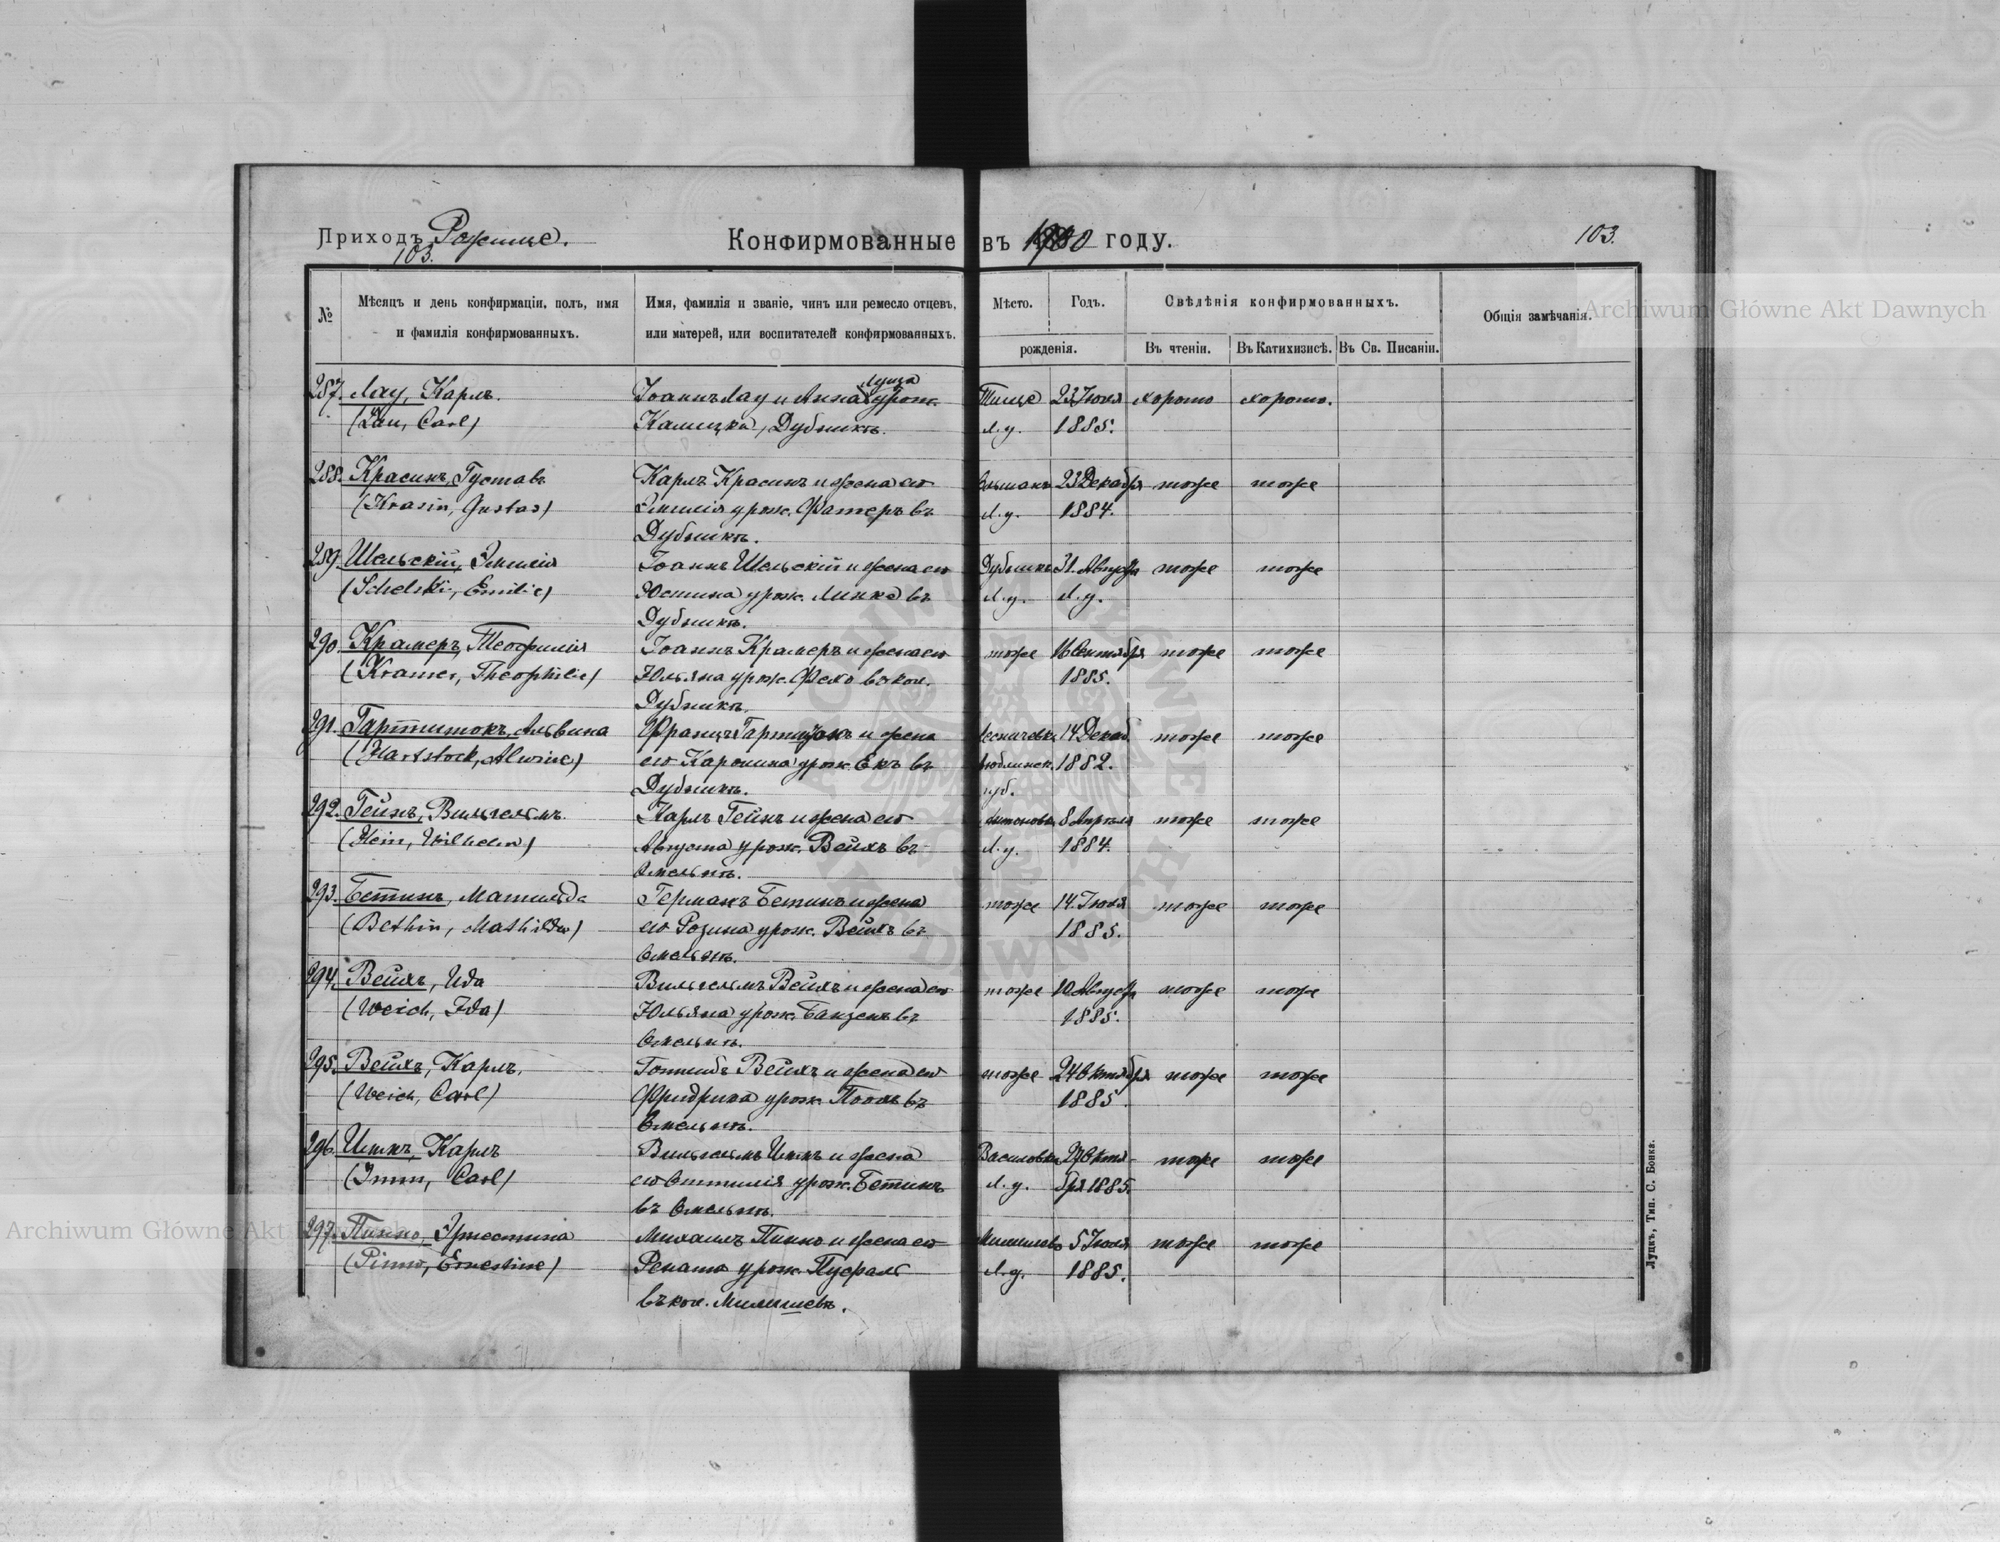 Приходъ Рожище.
103.
Конфирмованные въ 1900 году.
103.
№
Мѣсяцъ и день конфирмаціи, полъ, имя
и фамилія конфирмованныхъ.
Имя, фамилія и званіе, чинъ или ремесло отцевъ,
или матерей, или воспитателей конфирмованныхъ.
Мѣсто.
Годъ.
рожденія.
Свѣлѣнія конфирмованныхъ.
Въ чтеніи.
Въ Катихизисѣ.
Въ Св. Писаніи.
Общія замѣчанія.
287. Лау, Карлъ. Іоаннъ Лау и Анна Луиза урож. 23 Іюля хорошо хорошо.
(Lau, Carl) Дубникъ. Л. у. 1885.
288. Красинъ, Густавъ Карлъ Красинъ и жена его 23 Декабря тоже тоже
(Krasin, Gustav) Эмилія урож. Фатеръ въ Л. у. 1884.
Дубникъ.
289. Шельскій, Эмилія Іоаннъ Шельскій и жена его Дубникъ 31. Августа тоже тоже
(Schelski, Emilie) Юстина урож. Линке въ Л. у.
Дубникъ.
290. Крамеръ, Теофилія Іоаннъ Крамеръ и жена его тоже 16 Сентября тоже тоже
(Kramer, Theophilie) Юльяна урож. въ кол. 1885.
Дубникъ.
291. Гартштокъ, Альвина Францъ Гартштокъ и жена 14 Декаб. тоже тоже
(Hartstock, Alwine) его Каролина урож. Екъ въ Люблинск. 1882.
Дубникъ. губ.
292. Гейнъ, Вильгельмъ. Карлъ Гейнъ и жена его 8 Апрѣля тоже тоже
(Hein, Wilhelm) Августа урож. Вейхъ въ Л. у. 1884.
Омельнѣ.
293. Бетинъ, Матильда Германъ Бетинъ и жена тоже 14. Іюля тоже тоже
(Bethin, Mathilde) его Розина урож. Вейхъ въ 1885.
Омельнѣ.
294. Вейхъ, Ида Вильгельмъ Вейхъ и жена его тоже 10 Августа тоже тоже
(Weich, Ida) Юльяна урож. въ 1885.
Омельнѣ.
295. Вейхъ, Карлъ. Готлибъ Вейхъ и жена его тоже 24 Октября тоже тоже
(Weich, Carl) Фридрика урож. въ 1885.
Омельнѣ.
296. Иммъ, Карлъ Вильгельмъ Иммъ и жена Василовка Октя- тоже тоже
(Imm, Carl) его Оттилія урож. Бетинъ Л. у. бря 1885.
въ Омельнѣ.
297. Пинно, Эрнестина Михаилъ Пинно и жена его 5 Іюля тоже тоже
(Pinno, Ernestine) Рената урож. Л. у. 1885.
въ кол.
Луцкъ, Тип. С. Бонка.
Archiwum Główne Akt Dawnych
Archiwum Główne Akt Dawnych